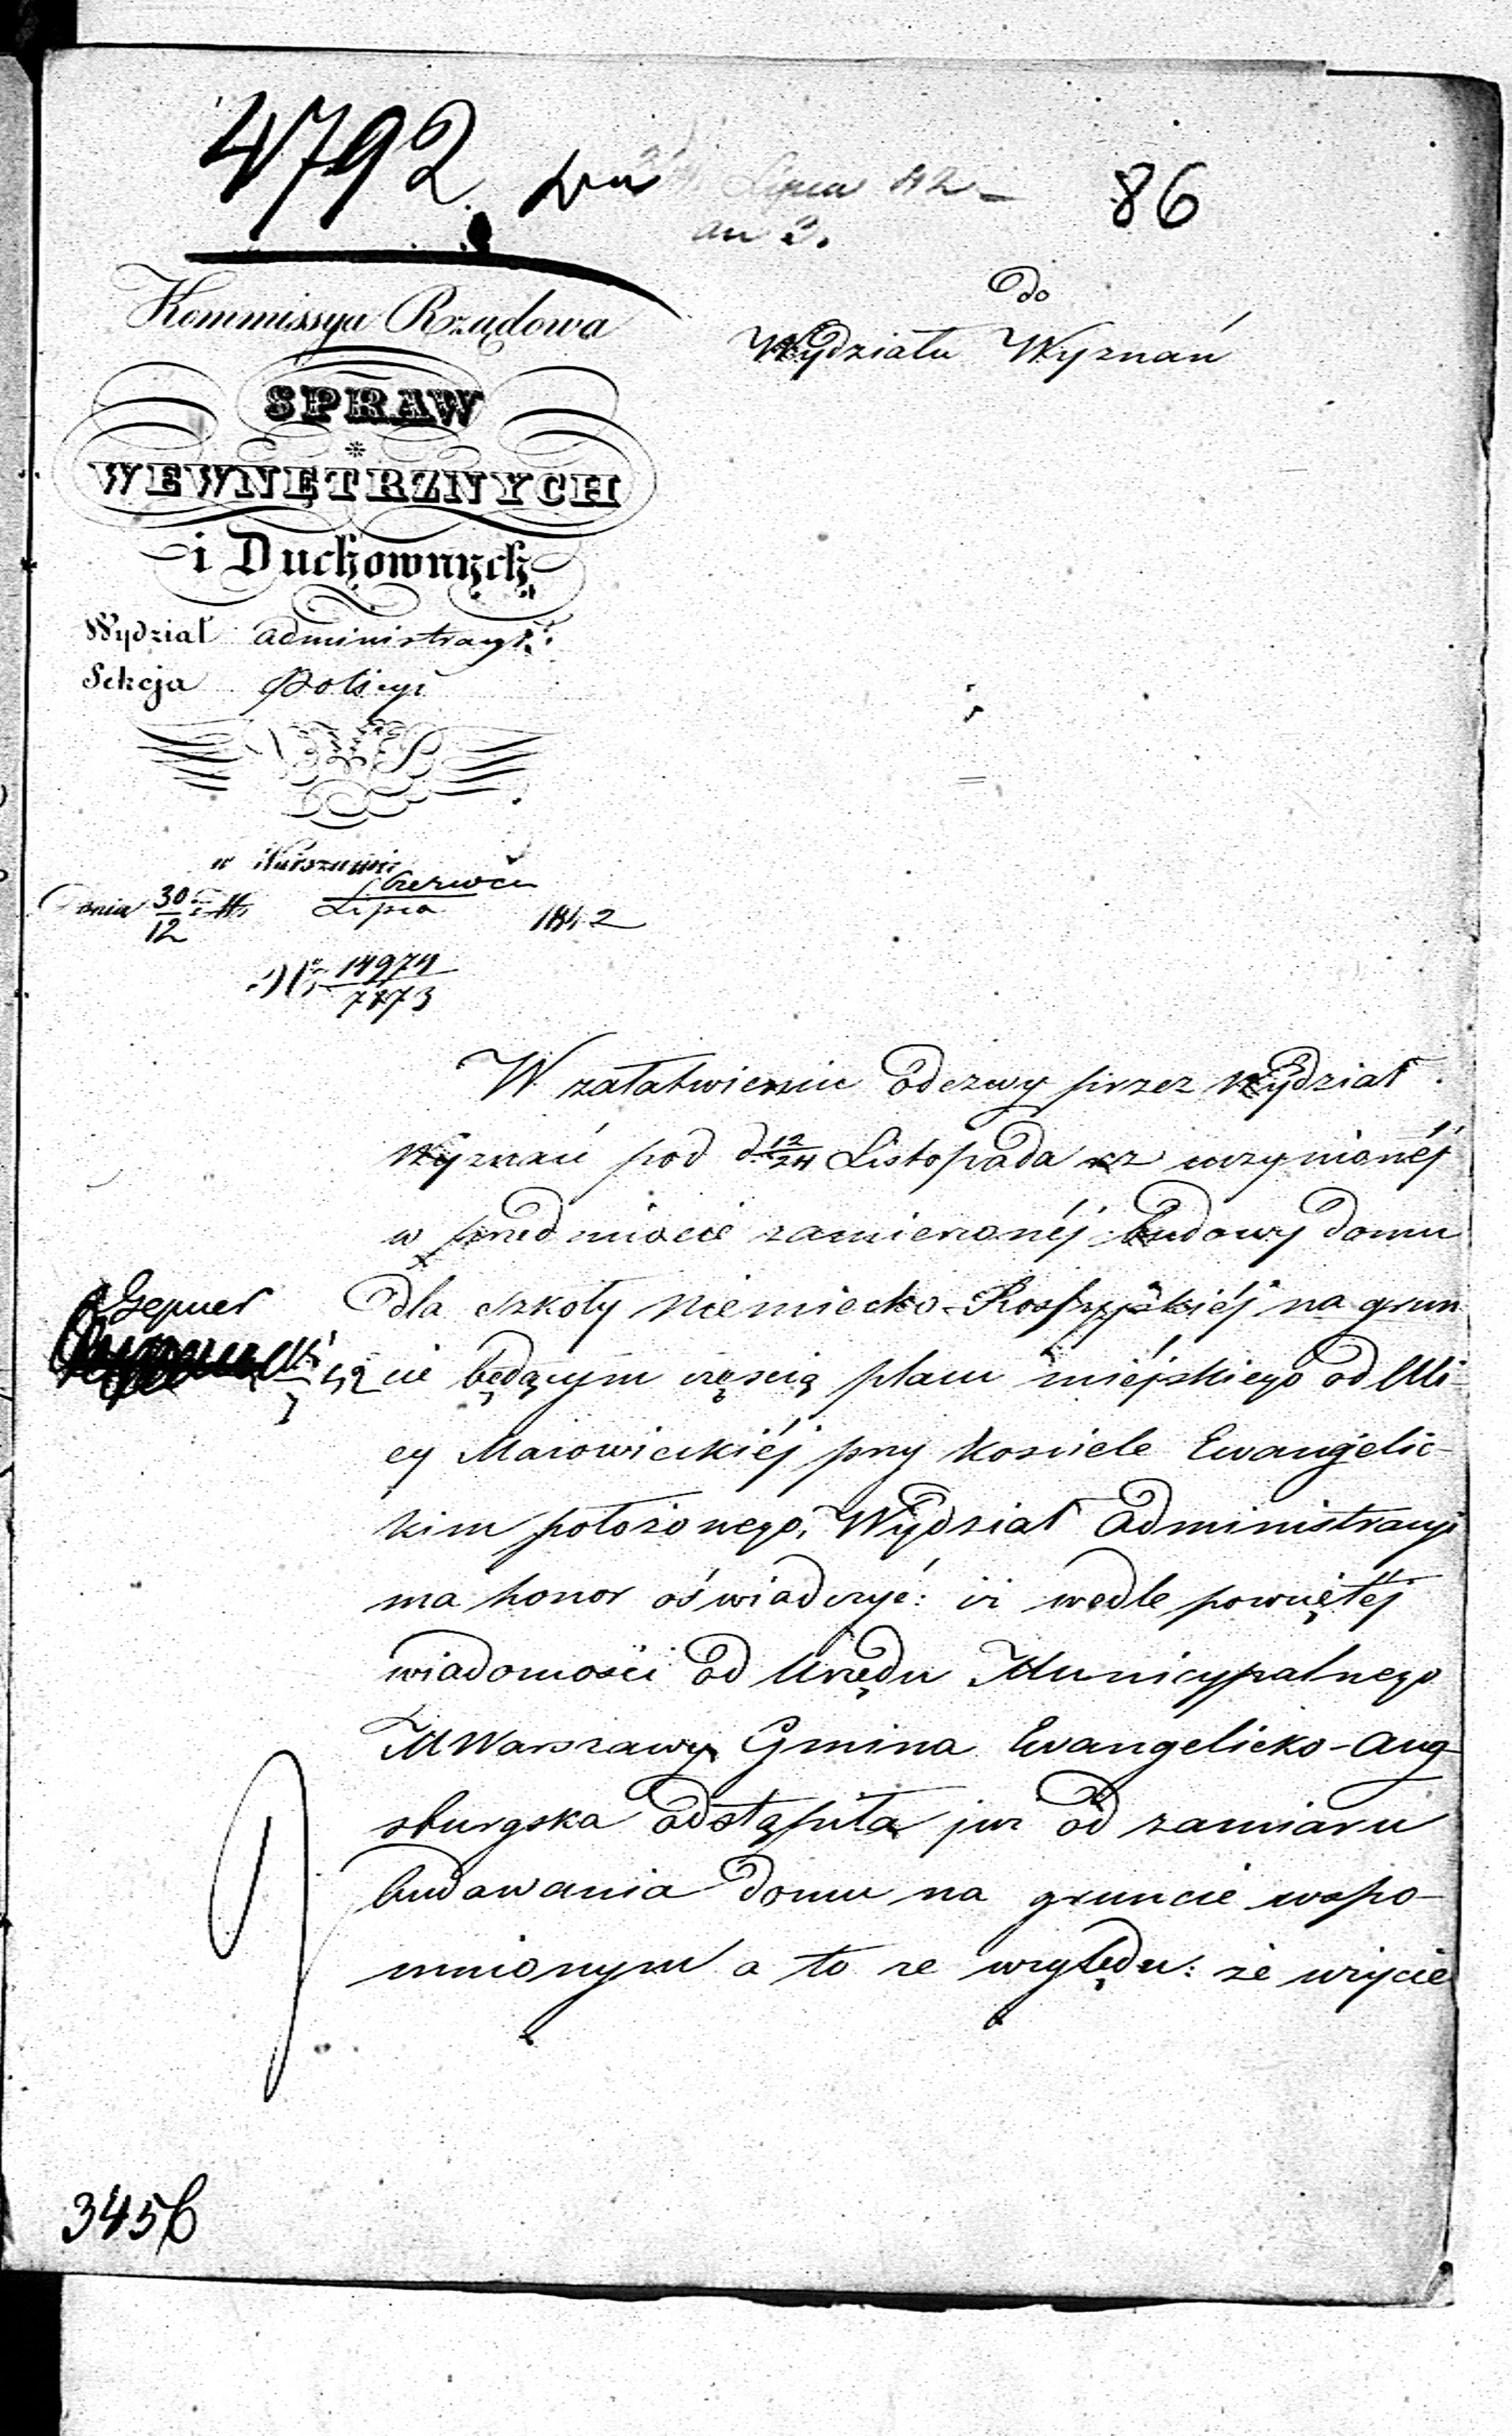 4792.
Lipca 42
86
Do
Wydziału Wyznań
Kommissya Rządowa
SPRAW
WEWNĘTRZNYCH
i Duchownych
Wydział Administracyi
Sekcja Policyi
w Warszawie
Dnia 30/12 Czerwca/Lipca 1842
No 14974/7873
W załatwieniu odezwy przez Wydział
Wyznań pod d. 12/24 Listopada rz uczynionéj
w przedmiocie zamierzonéj budowy domu
dla szkoły Niemiecko-Rossyjskiéj na grun
cie będącym częscią placu miéjskiego od Uli
cy Mazowieckiéj przy Kosciele Ewangelic-
kim położonego, Wydział Administracyi
ma honor oświadczyć: iż wedle powziętéj
wiadomości od Urzędu Municypalnego
M Warszawy Gmina Ewangelicko-Aug
sburgska odstąpiła już od zamiaru
budowania domu na gruncie wspo-
mnionym a to ze względu: że użycie
Gepner
3456